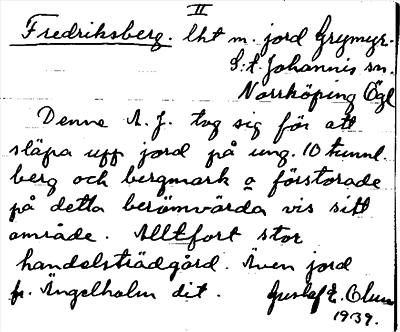 II
Fredriksberg. lht m. jord Grymyr.
S:t Johannis sn.
Norrköping Ögl
Denne A. J. tog sig för att
släpa upp jord på ung. 10 tunnl.
berg och bergmark o förstorade
på detta berömvärda vis sitt
område. Alltfort stor
handelsträdgård. Även jord
fr. Ängelholm dit. Gustaf E. Olun
1939.